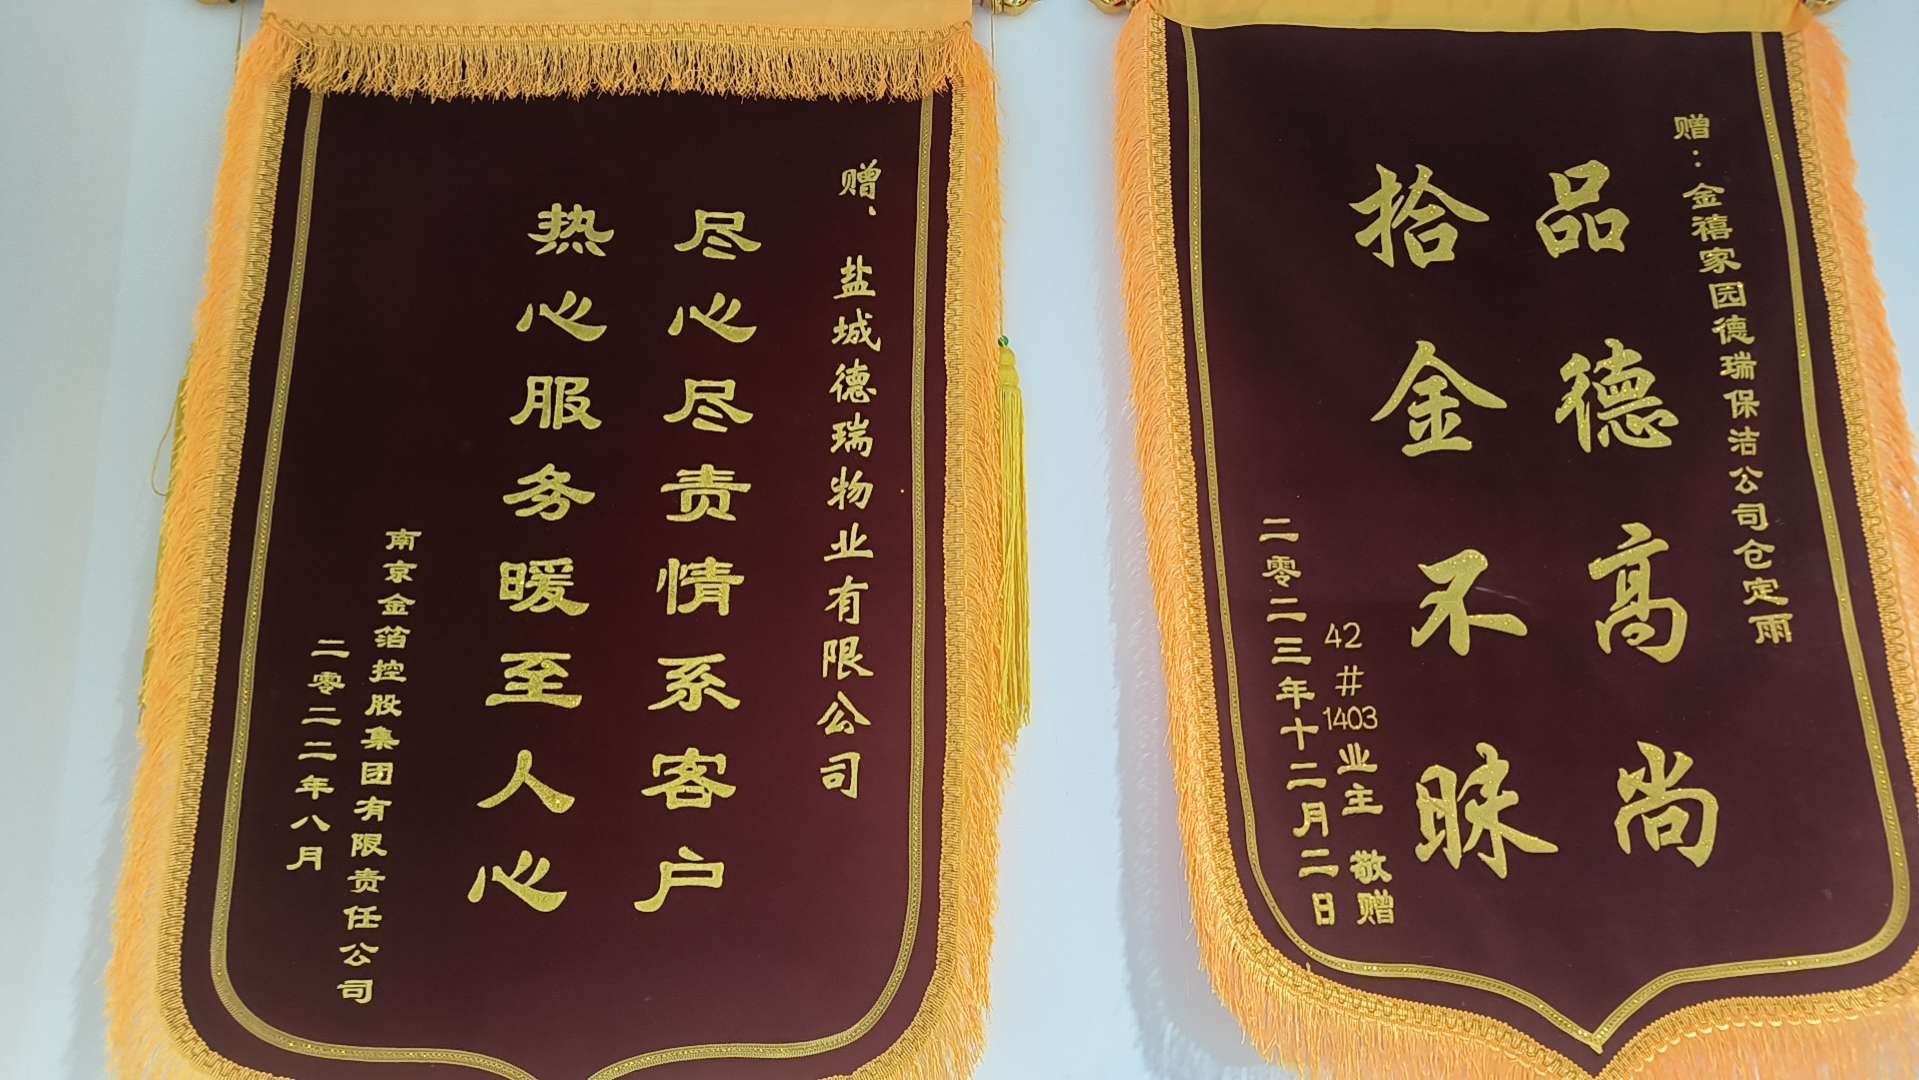 赠：盐城德瑞物业有限公司
尽心尽责情系客户
热心服务暖至人心
南京金箔控股集团有限责任公司
二零二二年八月
赠：金禧家园德瑞保洁公司仓定雨
品德高尚
拾金不昧
42#1403业主 敬赠
二零二三年十二月二日